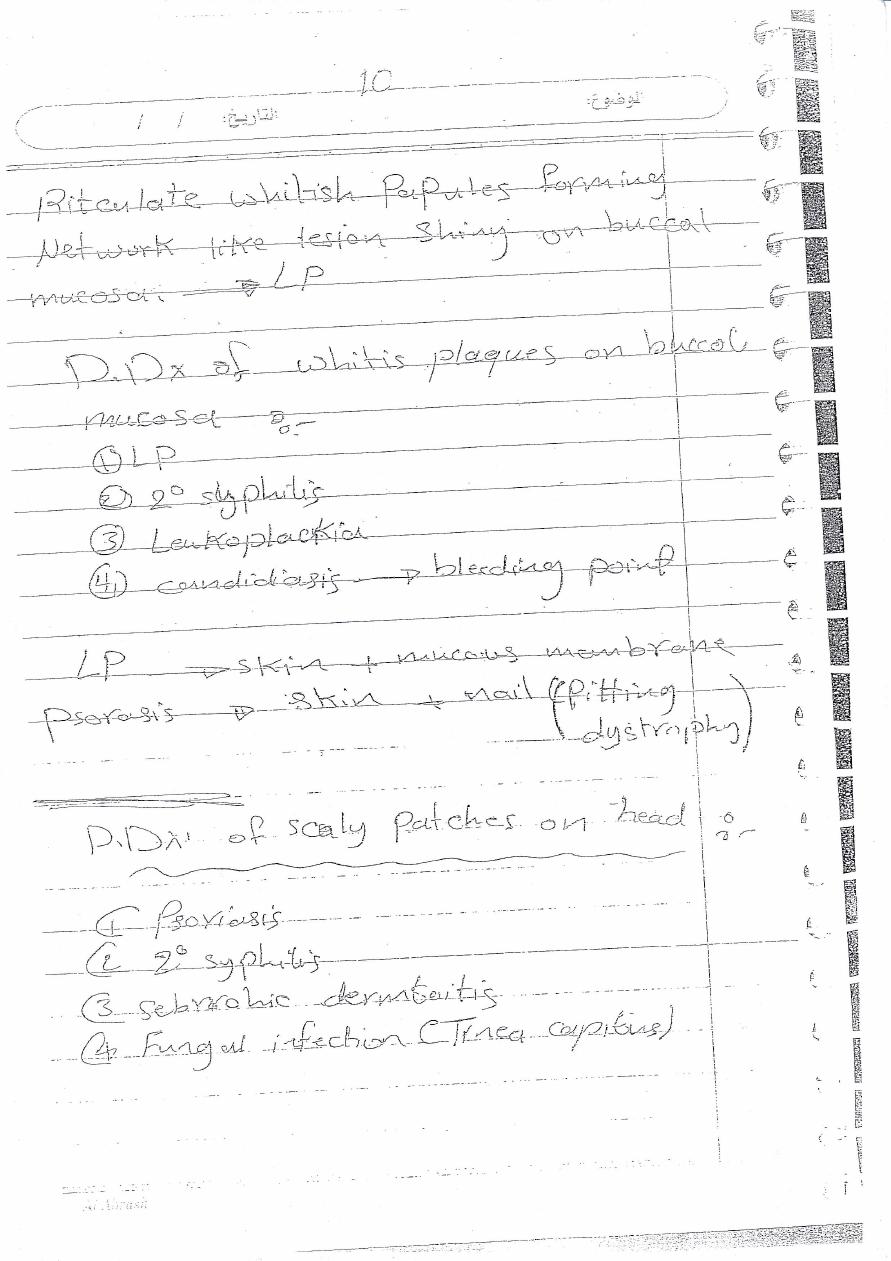 10
التاريخ: / /
الموضوع:
Riteulate whitish Papules forming
Network like lesion shiny on buccal
mucosa. → LP
D.Dx of whitis plaques on buccal
mucosa :-
① LP
② 2° syphilis
③ Leukoplackia
④ candidiasis → bleeding point
LP → skin + mucous membrane
psorasis → skin + nail (pitting
dystrophy)
D.Dx of scaly patches on head :-
① Psoriasis
② 2° syphilis
③ sebrrohic dermtaitis
④ Fungal infection (Tinea capitius)
Al Abrash